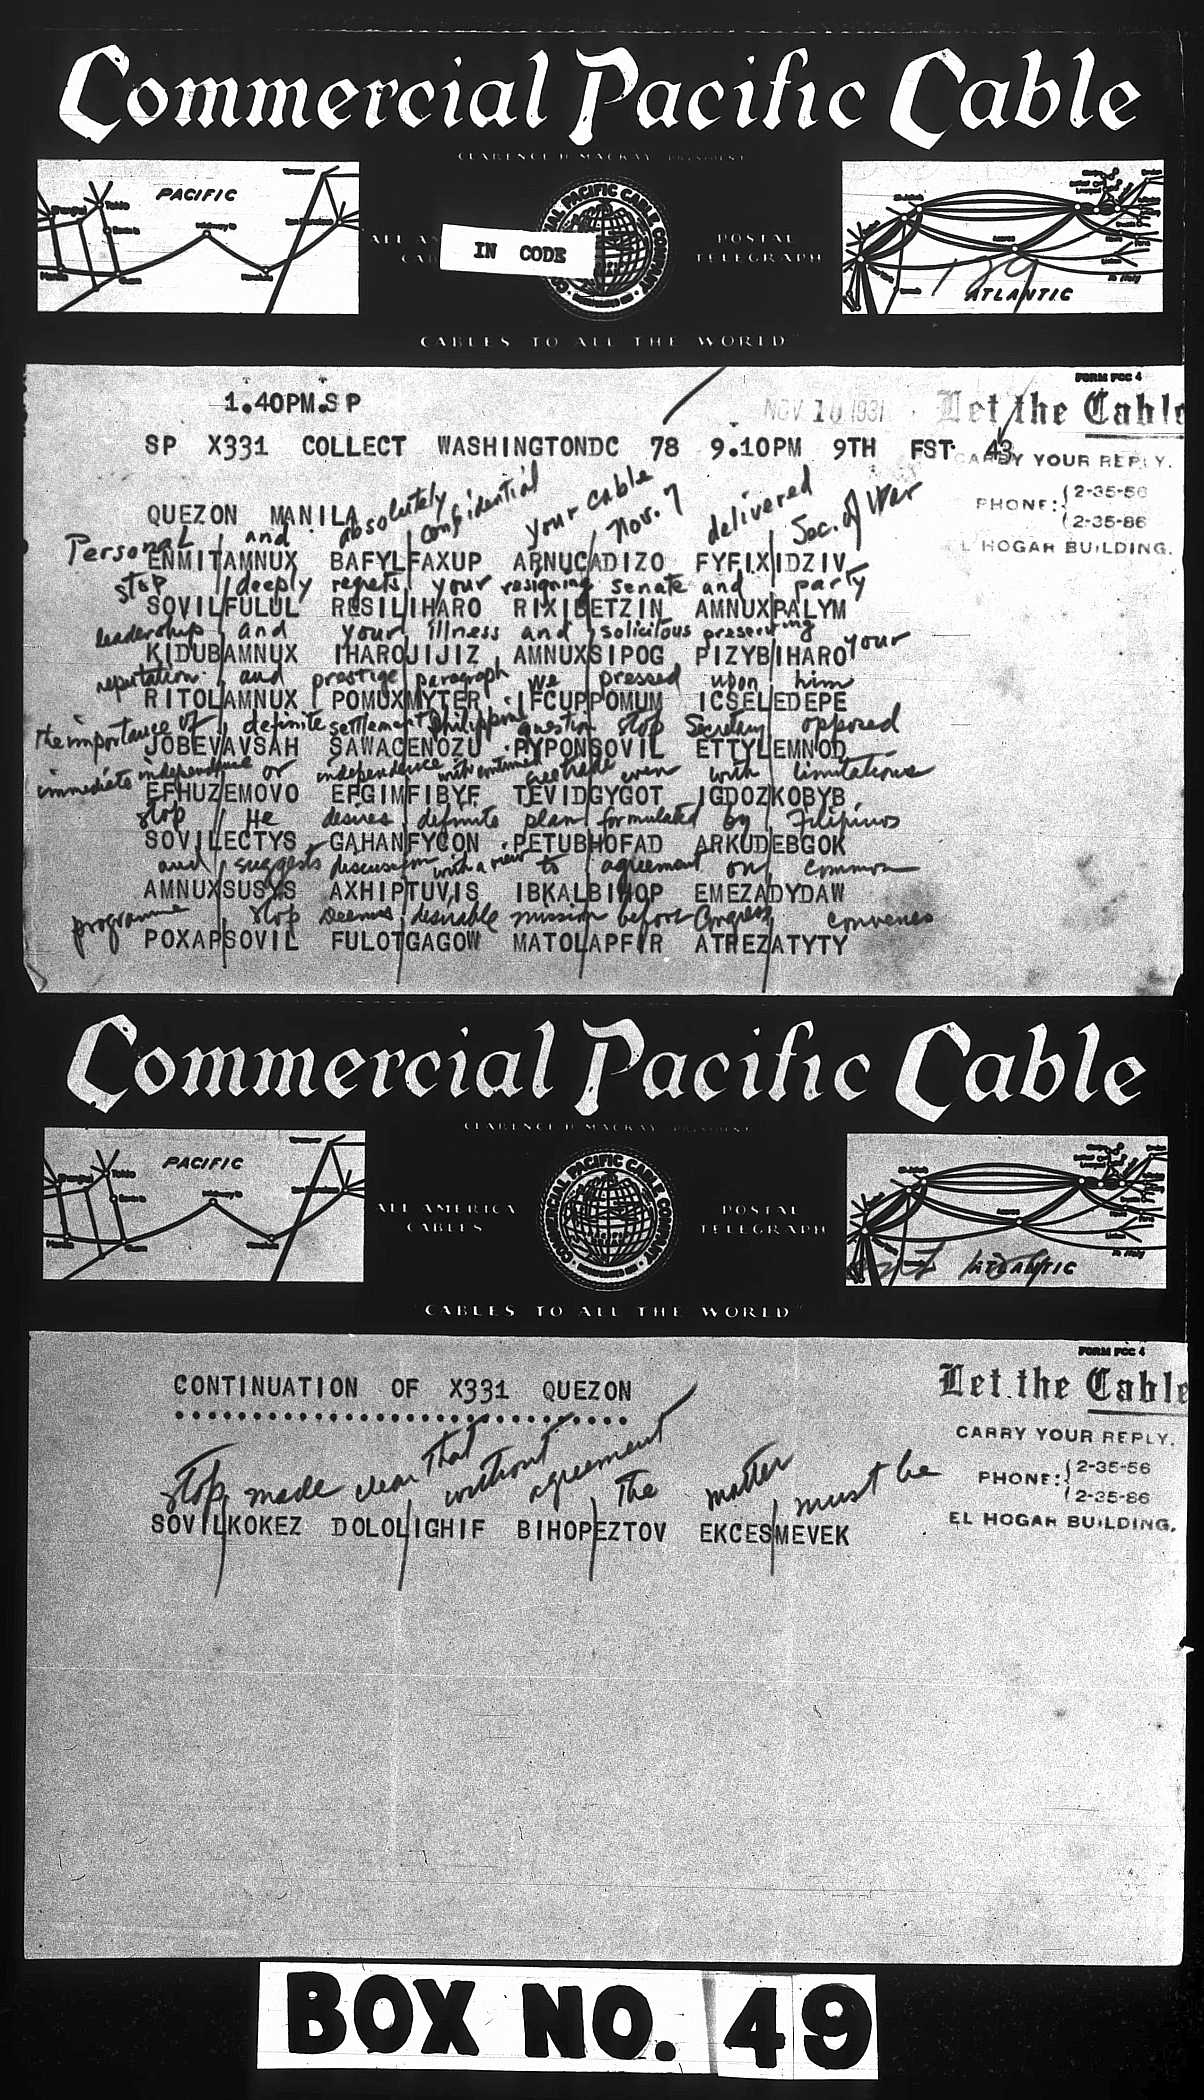 Commercial Pacific Cable
CLARENCE H. MACKAY, PRESIDENT
PACIFIC
Shanghai
Tokio
Midway Is
San Francisco
Manila
Guam
Honolulu
IN CODE
COMMERCIAL PACIFIC CABLE COMPANY
POSTAL
TELEGRAPH
Azores
ATLANTIC
129
"CABLES TO ALL THE WORLD"
FORM FCC 4
1.40PM.SP
NOV 10 1931
Let the Cable
SP X331 COLLECT WASHINGTONDC 78 9.10PM 9TH FST 43
CARRY YOUR REPLY.
PHONE: 2-35-56
2-35-86
EL HOGAR BUILDING.
QUEZON MANILA
Personal and absolutely confidential your cable Nov. 7 delivered Sec. of War
ENMITAMNUX BAFYLFAXUP ARNUCADIZO FYFIXIDZIV
stop I deeply regrets your resigning senate and party
SOVILFULUL RESILIHARO RIXILETZIN AMNUXPALYM
leadership and your illness and solicitous preserving your
KIDUBAMNUX IHAROJIJIZ AMNUXSIPOG PIZYBIHARO
reputation and prestige paragraph we pressed upon him
RITOLAMNUX POMUXMYTER IFCUPPOMUM ICSELEDEPE
the importance of definite settlement Philippine question stop Secretary opposed
JOBEVAVSAH SAWACENOZU PYPONSOVIL ETTYLEMNOD
immediate independence or independence with continued free trade even with limitations
EFHUZEMOVO EFGIMFIBYF TEVIDGYGOT IGDOZKOBYB
stop He desires definite plan formulated by Filipinos
SOVILECTYS GAHANFYCON PETUBHOFAD ARKUDEBGOK
and suggests discussion with a view to agreement on common
AMNUXSUSYS AXHIPTUVIS IBKALBIHOP EMEZADYDAW
programme stop Deems desirable mission before Congress convenes
POXAPSOVIL FULOTGAGOW MATOLAPFIR ATREZATYTY
Commercial Pacific Cable
CLARENCE H. MACKAY, PRESIDENT
PACIFIC
Shanghai
Tokio
Midway Is
San Francisco
Manila
Guam
Honolulu
ALL AMERICA
CABLES
COMMERCIAL PACIFIC CABLE COMPANY
POSTAL
TELEGRAPH
Azores
ATLANTIC
"CABLES TO ALL THE WORLD"
FORM FCC 4
CONTINUATION OF X331 QUEZON
Let the Cable
CARRY YOUR REPLY.
PHONE: 2-35-56
2-35-86
EL HOGAR BUILDING.
stop made clear that without agreement the matter must be
SOVILKOKEZ DOLOLIGHIF BIHOPEZTOV EKCESMEVEK
BOX NO. 49